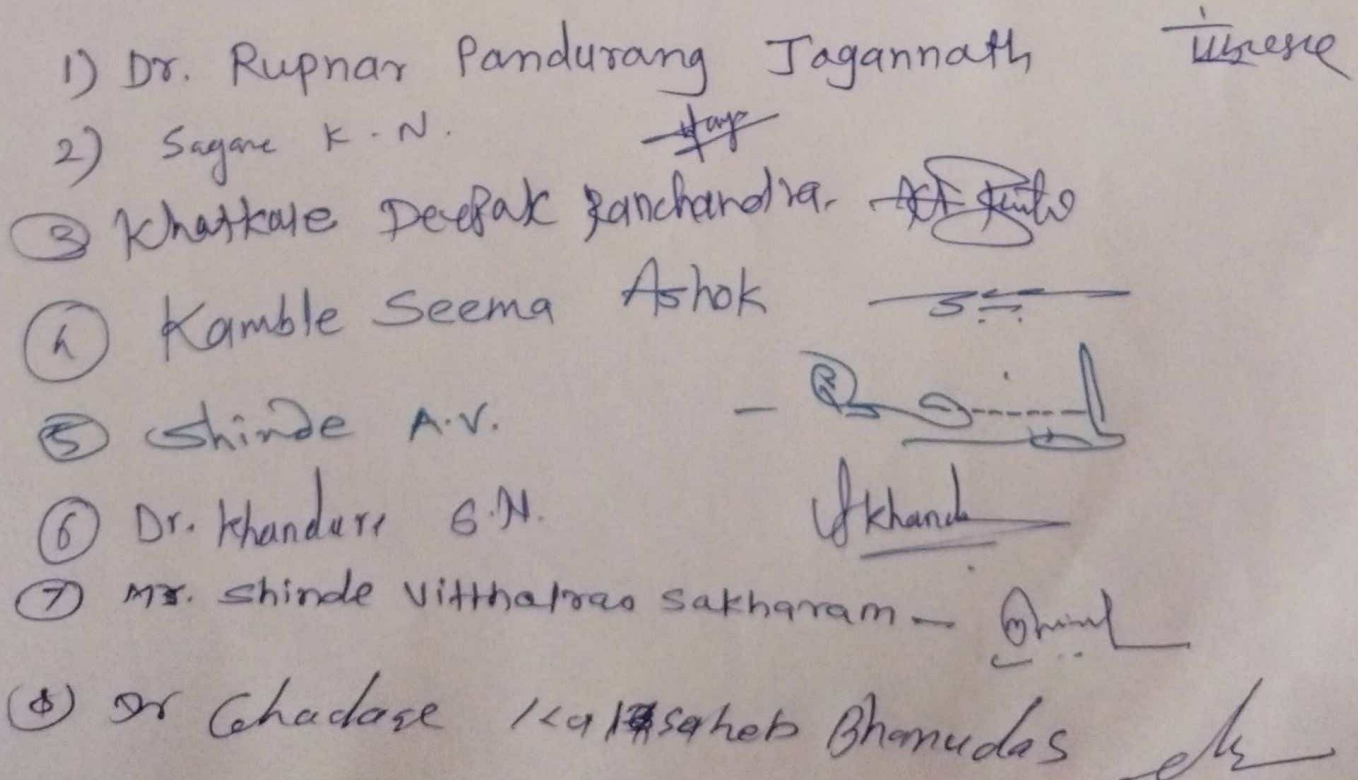 1) Dr. Rupnar Pandurang Jagannath
2) Sagare K.N.
3 Khatkale Deepak Ranchandra.
4 Kamble Seema Ashok
5 Shinde A.V.
6 Dr. Khandare S.N. Skhand
7 Mr. Shinde Vitthalrao Sakharam -
8 Dr Ghadage Bhanudas